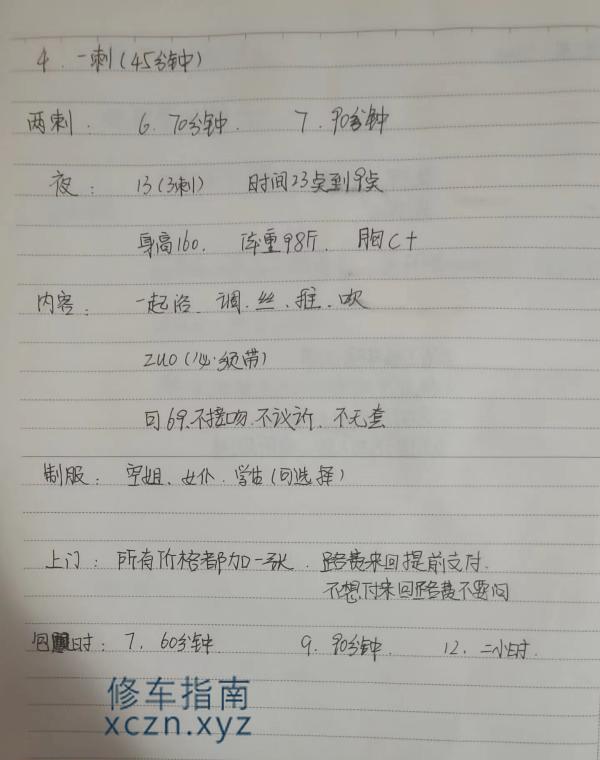 4. 一刺(45分钟)
两刺: 6. 70分钟. 7. 90分钟
夜: 13(3刺) 时间23点到9点
身高160. 体重98斤. 胸C+
内容: 一起浴. 调. 丝. 推. 吹
zuo(必须带)
可69.不接吻.不议价.不无套
制服: 空姐、女仆.学生(可选择)
上门: 所有价格都加一张. 路费来回提前支付.
不想付来回路费不要问
时: 7. 60分钟 9. 90分钟. 12. 二小时.
修车指南
xczn.xyz